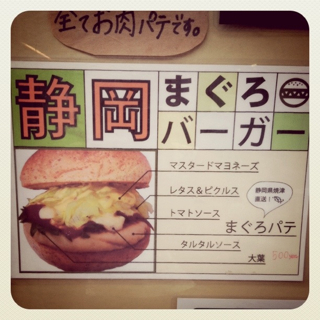 全てお肉パテです。
静岡
まぐろ
バーガー
マスタードマヨネーズ
レタス&ピクルス
トマトソース
タルタルソース
大葉
静岡県焼津
直送!
まぐろパテ
500円